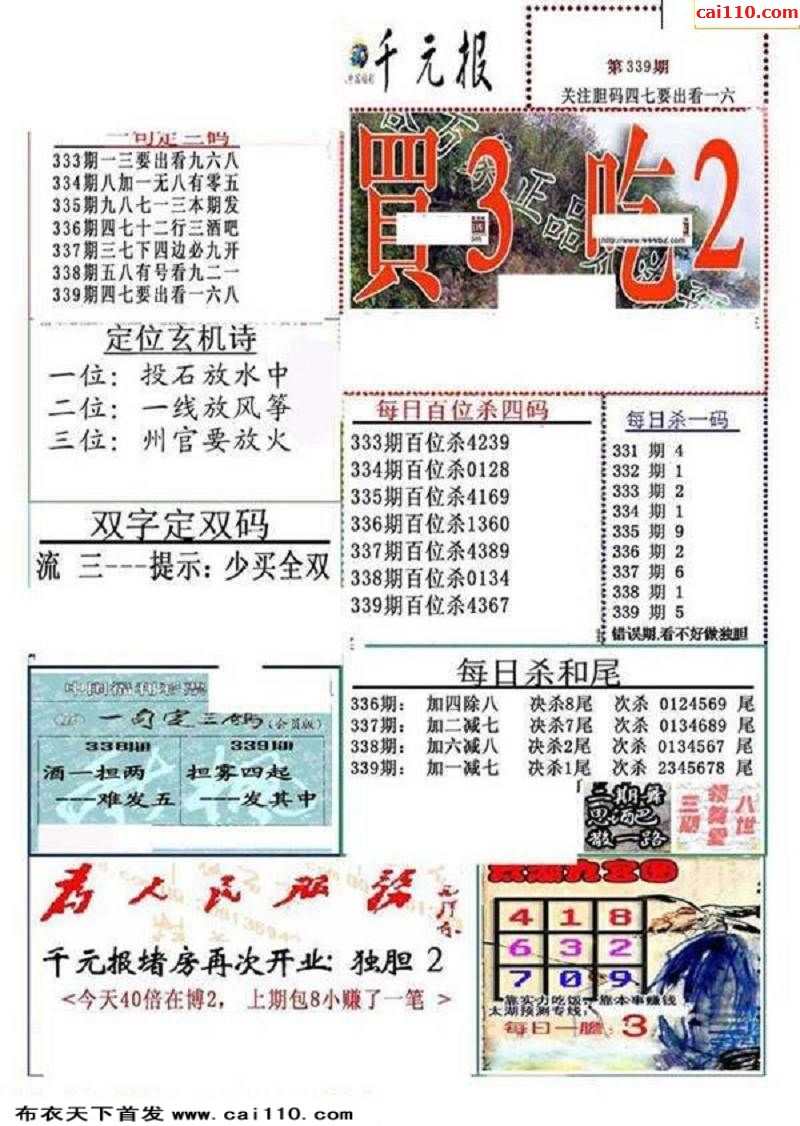 cai110.com
千元报
第339期
关注胆码四七要出看一六
一句定三码
333期一三要出看九六八
334期八加一无八有零五
335期九八七一三本期发
336期四七十二行三酒吧
337期三七下四边必九开
338期五八有号看九二一
339期四七要出看一六八
買3 吃2
定位玄机诗
一位：投石放水中
二位：一线放风筝
三位：州官要放火
每日百位杀四码
333期百位杀4239
334期百位杀0128
335期百位杀4169
336期百位杀1360
337期百位杀4389
338期百位杀0134
339期百位杀4367
每日杀一码
331 期 4
332 期 1
333 期 2
334 期 1
335 期 9
336 期 2
337 期 6
338 期 1
339 期 5
错误期.看不好做独胆
双字定双码
流 三---提示：少买全双
每日杀和尾
336期： 加四除八 决杀8尾 次杀 0124569 尾
337期： 加二减七 决杀7尾 次杀 0134689 尾
338期： 加六减八 决杀2尾 次杀 0134567 尾
339期： 加一减七 决杀1尾 次杀 2345678 尾
中国福利彩票
一句定三码(会员版)
338期
酒一担两
----难发五
339期
担雾四起
----发其中
思酒巴
散一路
三期
八世
为人民服务
千元报堵房再次开业：独胆 2
<今天40倍在博2， 上期包8小赚了一笔 >
4 1 8
6 3 2
7 0 9
靠实力吃饭，靠本事赚钱
太湖预测专线：
每日一胆：3
布衣天下首发 www.cai110.com